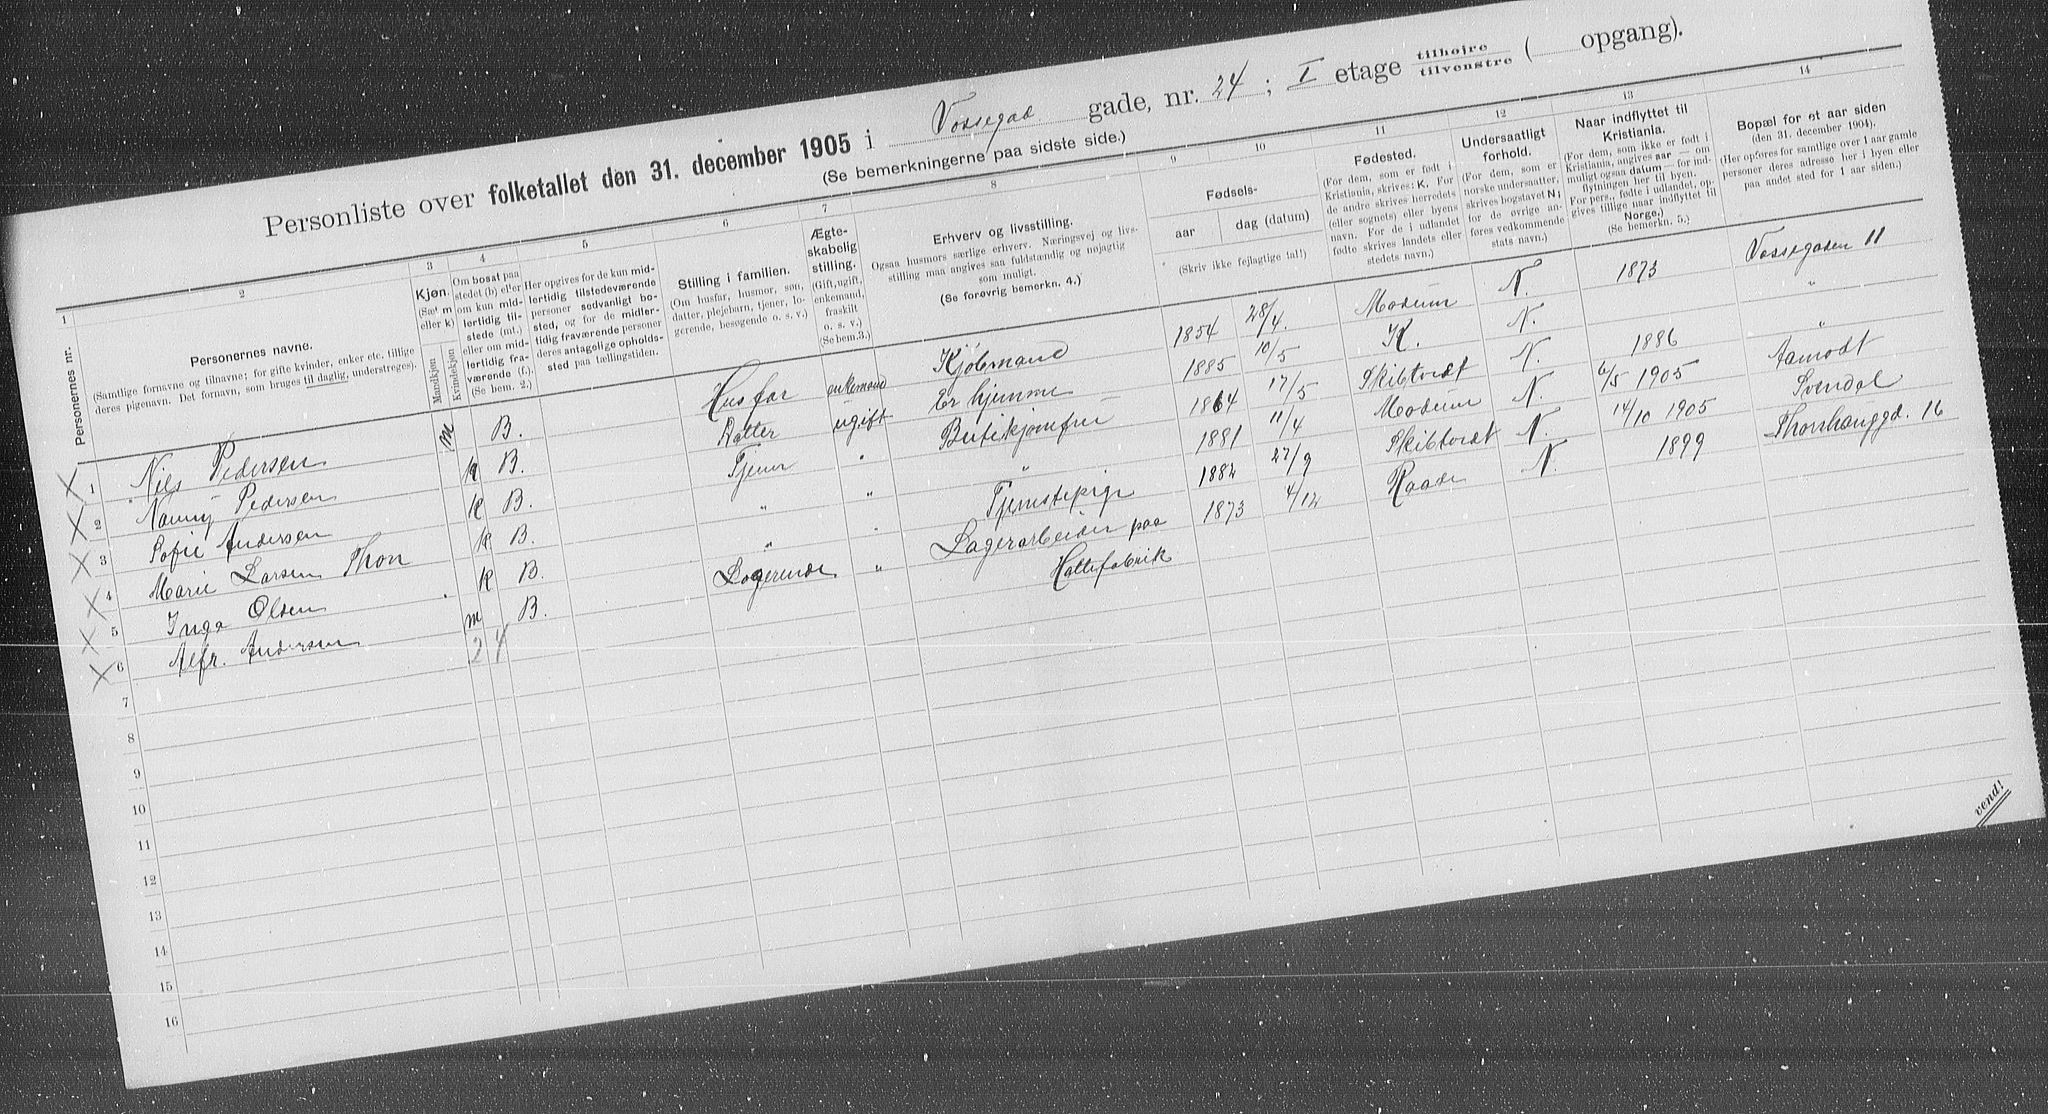 Personliste over folketallet den 31. december 1905 i Vossegad. gade, nr. 24; I etage tilhøjre tilvenstre ( opgang).
(Se bemerkningerne paa sidste side.)
1 2 3 4 5 6 7 8 9 10 11 12 13 14
Personernes nr.
Personernes navne.
(Samtlige fornavne og tilnavne; for gifte kvinder, enker etc. tillige
deres pigenavn. Det fornavn, som bruges til daglig, understreges).
Kjøn.
(Sæt m
eller k)
Mandkjøn
Kvindekjøn
Om bosat paa
stedet (b) eller
om kun mid-
lertidig til-
stede (mt.)
eller om mid-
lertidig fra-
værende (f.).
(Se bem. 2.)
Her opgives for de kun mid-
lertidig tilstedeværende
personer sedvanligt bo-
sted, og for de midler-
tidig fraværende personer
deres antagelige opholds-
sted paa tællingstiden.
Stilling i familien.
(Om husfar, husmor, søn,
datter, plejebarn, tjener, lo-
gerende, besøgende o. s. v.)
Ægte-
skabelig
stilling.
(Gift, ugift,
enkemand,
fraskilt
o. s. v.)
(Se bem.3.)
Erhverv og livsstilling.
Ogsaa husmors særlige erhverv. Næringsvej og livs-
stilling maa angives saa fuldstændig og nøjagtig
som muligt.
(Se forøvrig bemerkn. 4.)
Fødsels-
aar dag (datum)
(Skriv ikke fejlagtige tal!)
Fødested.
(For dem, som er født i
Kristiania, skrives: K. For
de andre skrives herredets
(eller sognets) eller byens
navn. For de i udlandet
fødte skrives landets eller
stedets navn.)
Undersaatligt
forhold.
(For dem, som er
norske undersaatter,
skrives bogstavet N;
for de øvrige an-
føres vedkommende
stats navn.)
Naar indflyttet til
Kristiania.
(For dem, som ikke er født i
Kristiania, angives aar — om
muligt ogsaa datum — for ind-
flytningen her til byen.
For pers., fødte i udlandet, op-
gives tillige naar indflyttet til
Norge.)
(Se bemerkn. 5.)
Bopæl for et aar siden
(den 31. december 1904).
(Her opføres for samtlige over 1 aar gamle
personer deres adresse her i byen eller
paa andet sted for 1 aar siden.)
1 Nils Pedersen m B. Husfar enkemand Kjøbmand 1854 28/4. Modum N. 1873 Vossegaden 11
2 Nanny Pedersen k B. Datter ugift Er hjemme 1885 10/5 K. N. "
3 Sofie Andersen k B. Tjener " Butikjomfru 1864 17/5 Skibtvedt N. 1886 "
4 Marie Larsen Thon k B. " " " 1881 11/4 Modum N. 6/5 1905 Aamodt
5 Inga Olsen k B. " " Tjenestepige 1882 27/9 Skibtvedt N. 14/10 1905
6 Alfr. Andersen m B. Logerende " Lagerarbeider paa 1873 4/12 Raade N. 1899 Thorshauggd. 16
Hattefabrik
2 4
7
8
9
10
11
12
13
14
15
16
vend!